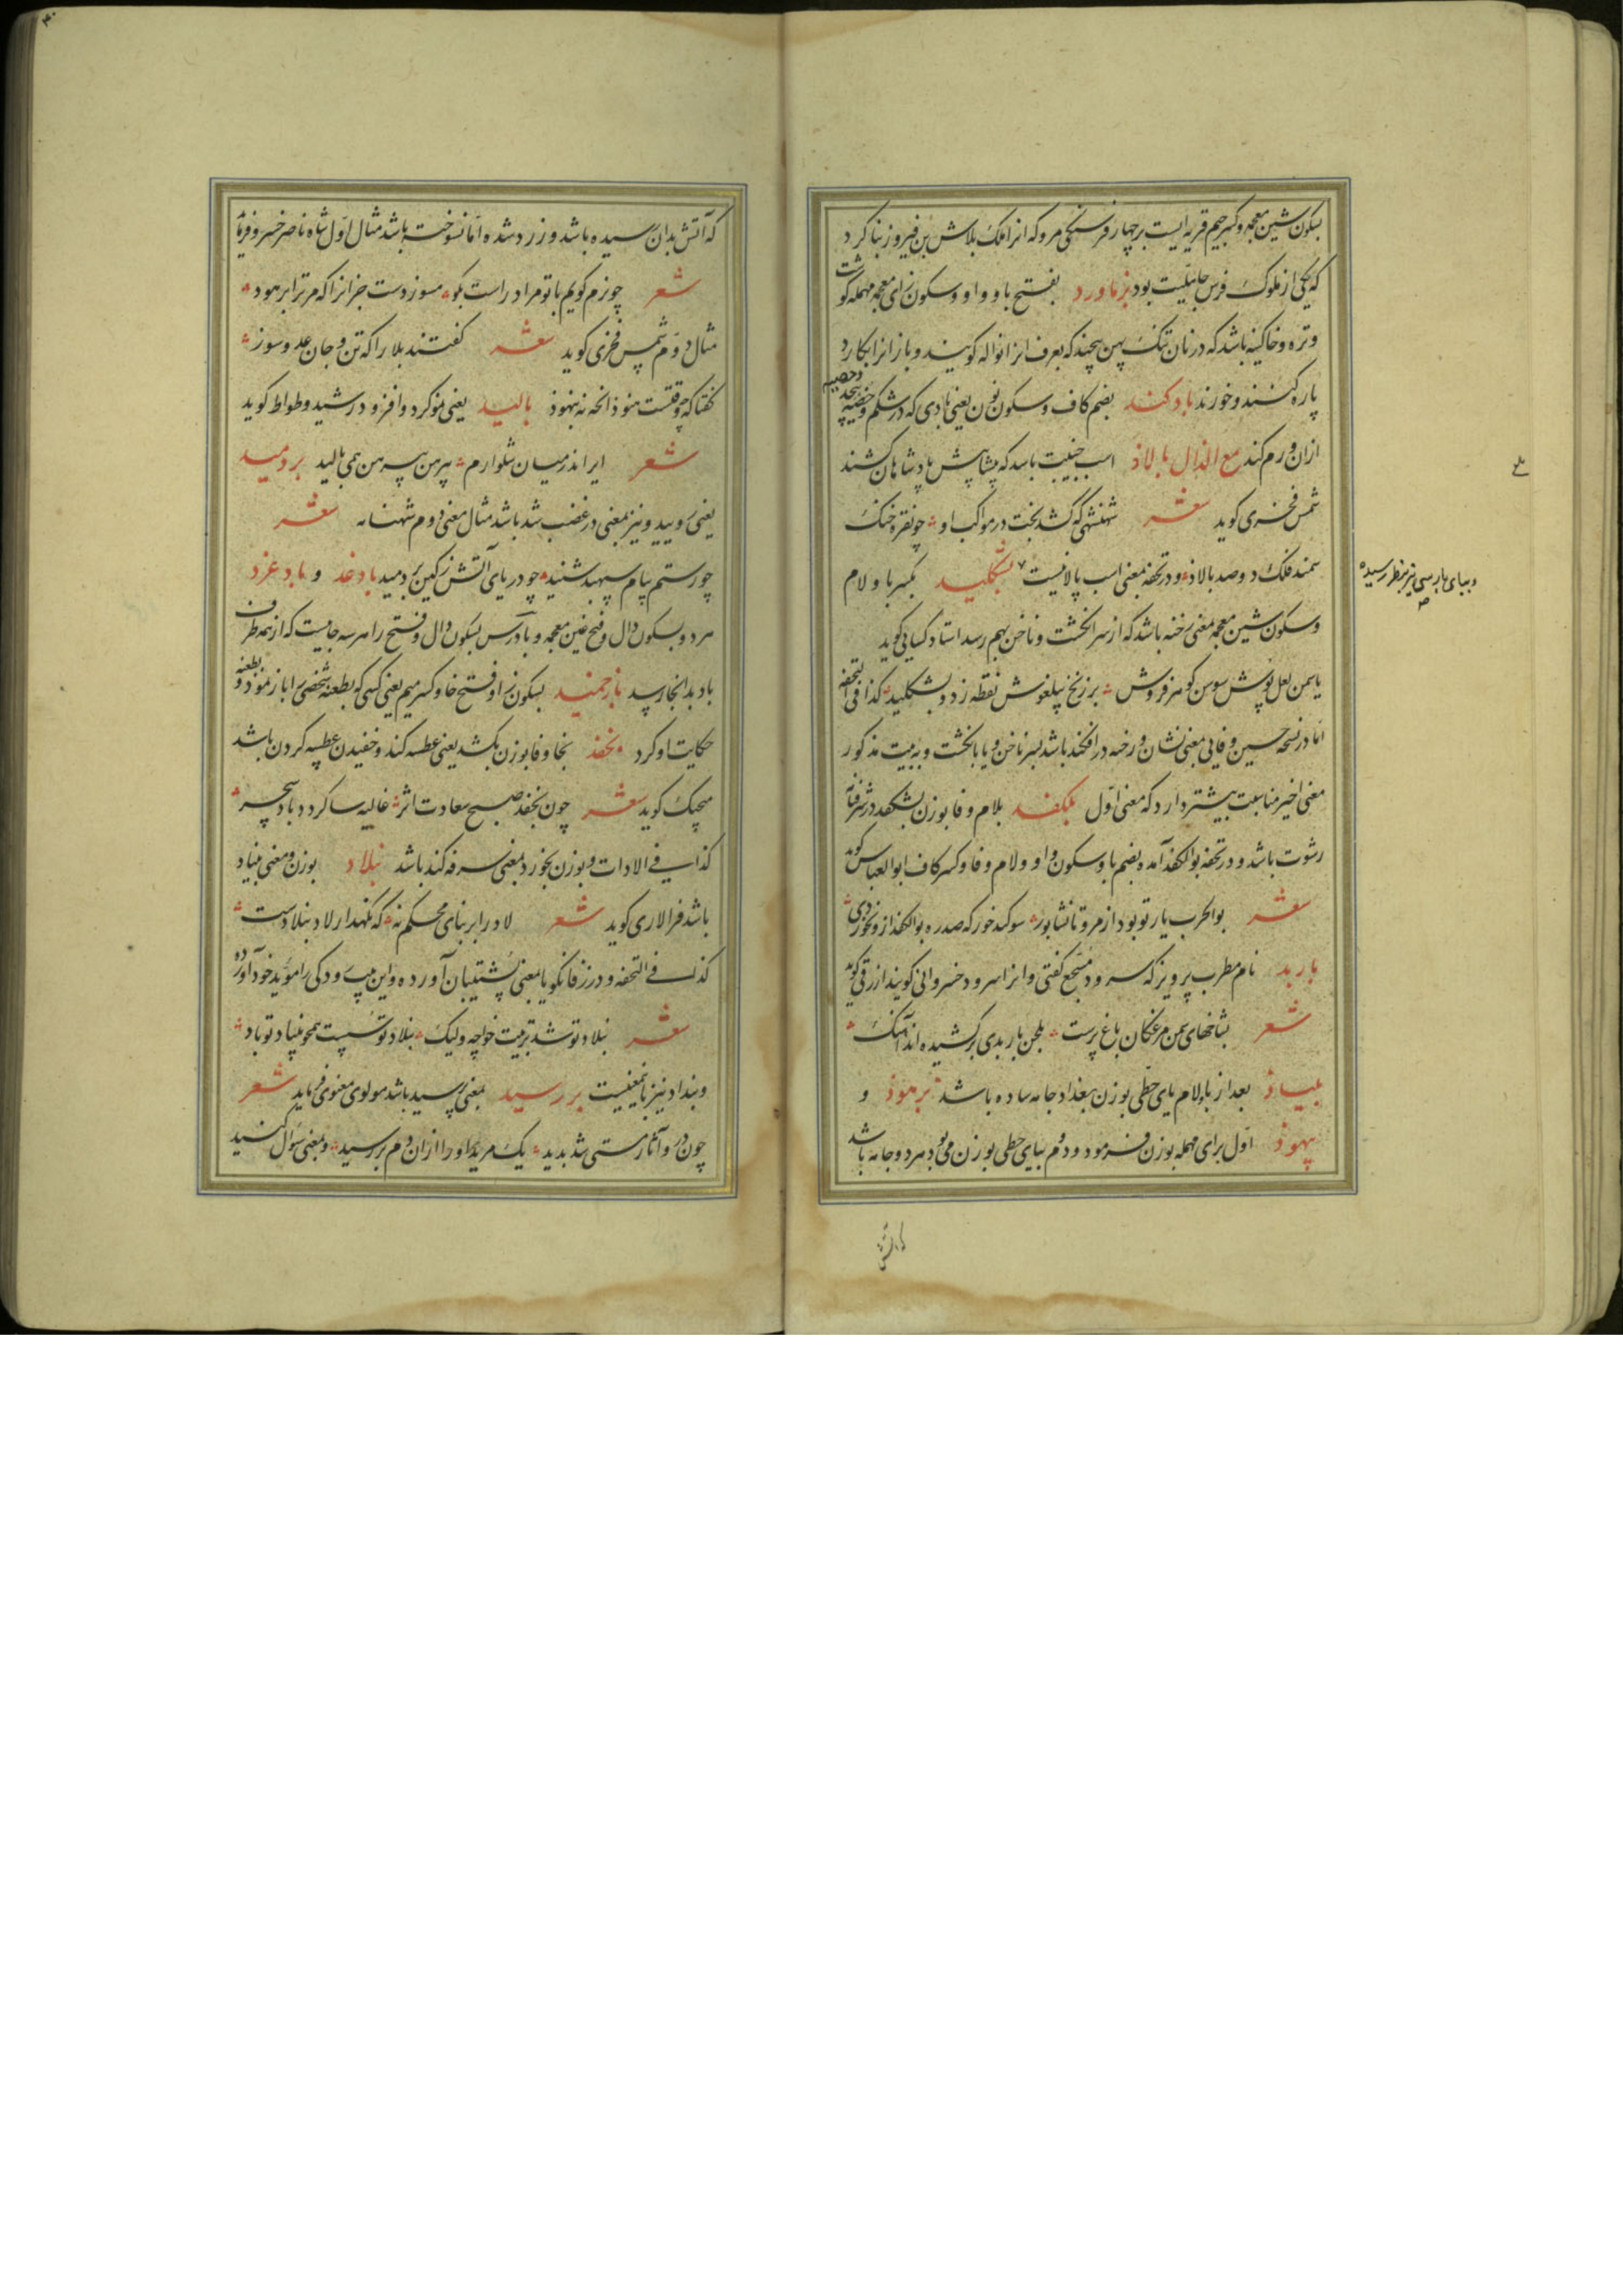 بسکون شین معجمه و کسر جیم قریه ایست بر چهار فرسنکی مرو که انرا ملک بلاش بن فیروز بنا کرد
که یکی از ملوک فرس جاهلیت بود بزماورد بفتح با و واو و سکون زای معجمه و مهمله کوشت
و تره و خاکینه باشد که در نان تنک پهن پیچند که بعرف انرا نواله کویند و باز انرا بکارد
پاره کنند و خورند بادکند بضم کاف و سکون نون یعنی بادی که در شکم و خصیه پیچد
ازان ورم کند مع الذال بالاذ اسب جنیبت باشد که پیشاپیش پادشاهان کشند
شمس فخری کوید شعر شهنشهی که کشد بخت در مواکب او چو نقره خنک
سمند فلک دو صد بالاذ و در تحفه بمعنی اسب پالانیست بشکلید بکسر با و لام
و سکون شین معجمه بمعنی رخنه باشد که از سر انکشت و ناخن بهم رسد استاد کسایی کوید
یاسمن لعل پوش سوسن کوهر فروش بر زنخ پیلغوش نقطه زد و بشکلید کذا فی التحفه
اما در نسخه حسین وفایی بمعنی نشان و رخنه در افکند باشد بسر ناخن و یا بانکشت و به بیت مذکور
معنی اخیر مناسبت بیشتر دارد که معنی اول بلکفد بلام و فا بوزن بشکفد در شرفنامه
رشوت باشد و در تحفه بوالکفد آمده بضم با و سکون واو و لام و فا و کسر کاف ابوالعباس کوید
شعر بوالحرب یار تو بود از مرو تا نشابور سوکند خور که صد ره بوالکفد ازو نخوردی
باربد نام مطرب پرویز که سرود مسجع کفتی و انرا سرود خسروانی کویند ازرقی کوید
شعر بشاخهای سمن مرغکان باغ پرست بلحن باربدی برکشیده اند آهنک
بلیاد بعد از باء لام یای حطی بوزن بغداد جامه ساده باشد برهوذ و
بیهوذ اول برای مهمله بوزن فرمود و دوم بیای حطی بوزن می بود هر دو جامه باشد
و ببای پارسی نیز بنظر رسیده
که آتش
که آتش بدان رسیده باشد و زرد شده اما نسوخته باشد مثال اول شاه ناصر خسرو فرماید
شعر چو نرم کویم با تو مرا درشت مکو مسوز دست جز انرا که مر ترا برهود
مثال دوم شمس فخری کوید شعر کفتند بلا را که تن و جان عدو سوز
کفتا که چو قتست هنوز انجه نه بیهوذ بالید یعنی نمو کرد و افزود رشید وطواط کوید
شعر ایر اندر میان شلوارم پیرهن پیرهن همی بالید بردمید
یعنی رویید و نیز بمعنی در غضب شد باشد مثال معنی دوم شهنامه شعر
چو رستم پیام سپهبد شنید چو دریای آتش ز کین بردمید بادغد و بادغرد
هر دو بسکون دال و فتح غین معجمه و بادرس بسکون دال و فتح را هر سه جاییست که از همه طرف
باد بدانجا رسد بازخمید بسکون زا و فتح خا و کسر میم یعنی کسی کو بطعنه شخصی را باز نمود و بطعنه
حکایت او کرد بخفد بخا و فا بوزن بکشد یعنی عطسه کند و خفیدن عطسه کردن باشد
منجیک کوید شعر چون بخفد صبح سعادت اثر غالیه سا کردد باد سحر
کذا فی الادات و بوزن بخورد بمعنی سرفه کند باشد بنلاد بوزن و معنی بنیاد
باشد فرالاری کوید شعر لاد را بر بنای محکم نه که نکهدار لاد بنلادست
کذا فی التحفه و در زفانکویا بمعنی پشتیبان آورده و این بیت رودکی را مؤید خود آورده
شعر بنلاد تو شد تربیت خواجه ولیک بنلاد تو سست همچو بنیاد تو باد
و بنداد نیز باینمعنیست بررسید بمعنی پرسید باشد مولوی معنوی فرماید شعر
چون درو آثار مستی شد پدید یک مرید او را ازان دم بررسید و بمعنی سؤال کنید